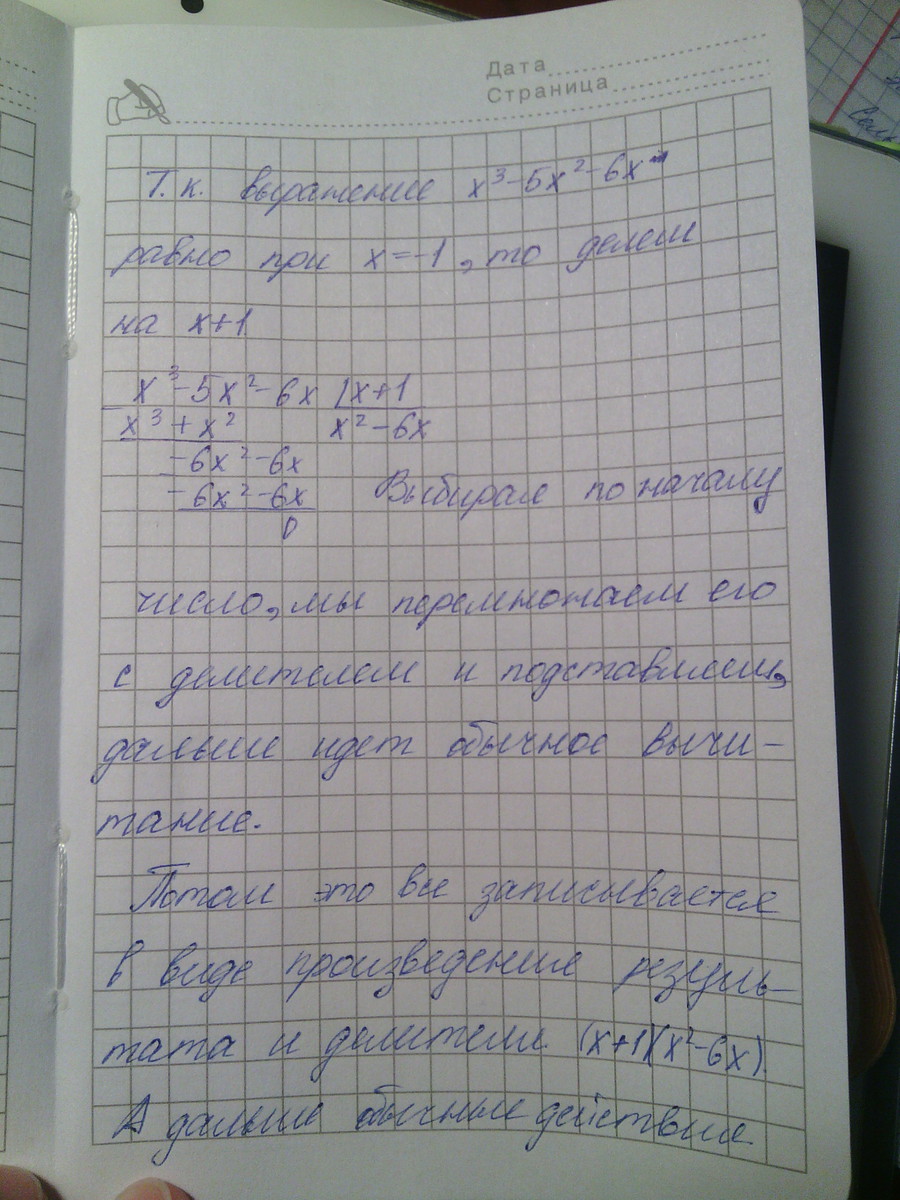 Дата
Страница
Т.к. выражение x³-5x²-6x
равно при x=-1, то делем
на x+1
x³-5x²-6x | x+1
x³+x² x²-6x
-6x²-6x
-6x²-6x Выбирая по началу
0
число, мы перемножаем его
с делителем и подставляем,
дальше идет обычное вычи-
тание.
Потом это все записывается
в виде произведение резуль-
тата и делителя. (x+1)(x²-6x)
А дальше обычные действия